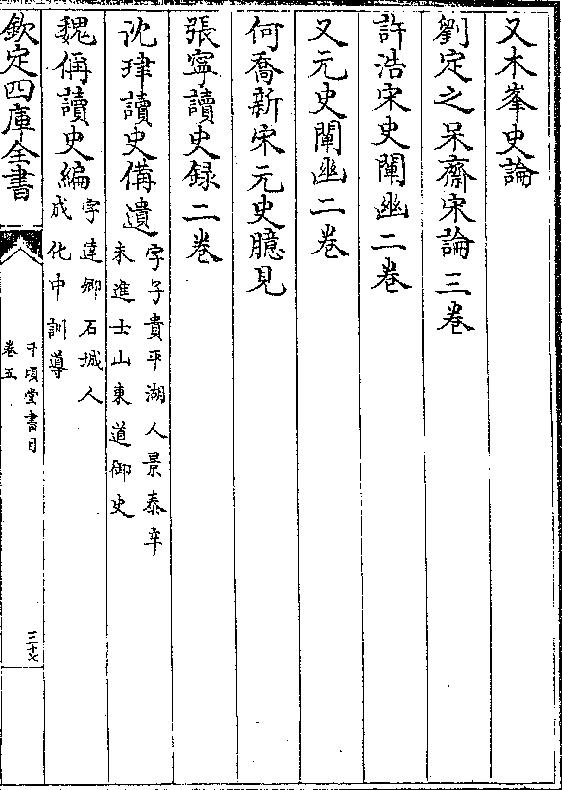 又木峯史論
劉定之呆齋宋論三卷
許浩宋史闡幽二卷
又元史闡幽二卷
何喬新宋元史臆見
張寧讀史録二卷
沈㻶讀史備遺
字子貴平湖人景泰辛
未進士山東道御史
魏偁讀史編
字達卿石城人
成化中訓導
欽定四庫全書
千頃堂書目
卷五
三十七